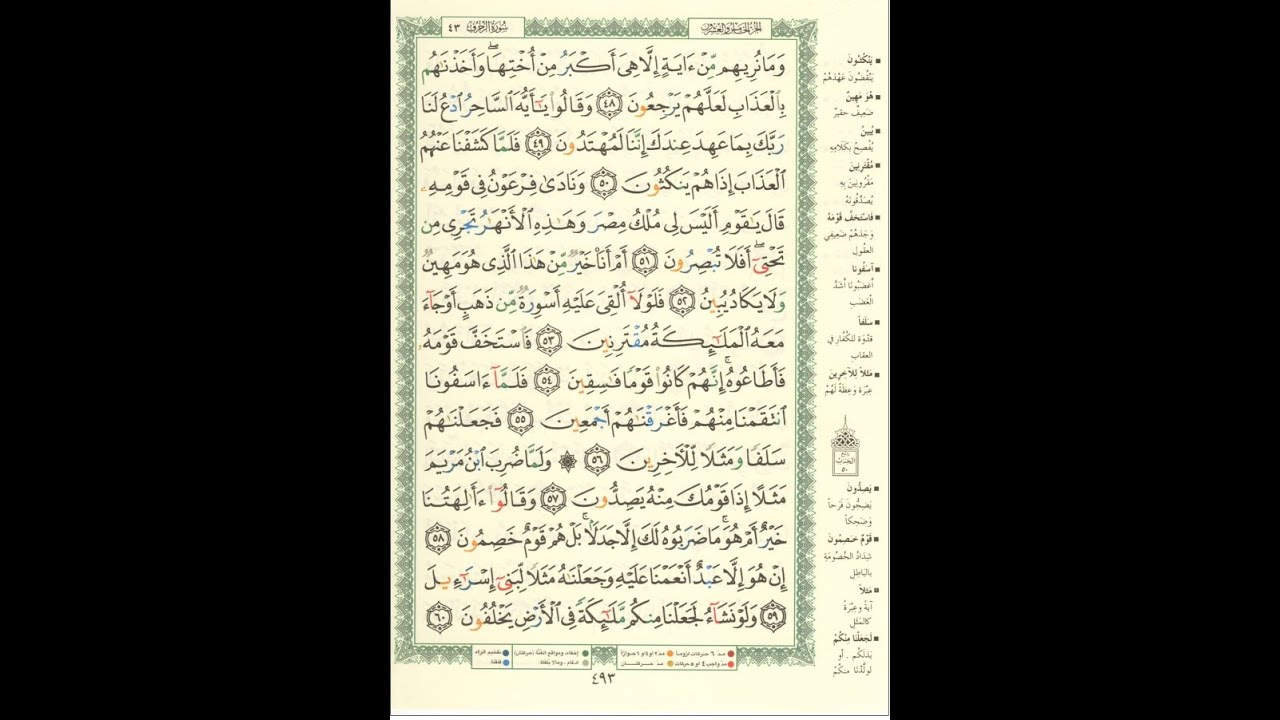 سُورَةُ الزُّخْرُفِ ٤٣
الجزء الخامس والعشرون
وَمَا نُرِيهِم مِّنْ ءَايَةٍ إِلَّا هِىَ أَكْبَرُ مِنْ أُخْتِهَا ۖ وَأَخَذْنَٰهُم
بِٱلْعَذَابِ لَعَلَّهُمْ يَرْجِعُونَ ٤٨ وَقَالُوا۟ يَٰٓأَيُّهَ ٱلسَّاحِرُ ٱدْعُ لَنَا
رَبَّكَ بِمَا عَهِدَ عِندَكَ إِنَّنَا لَمُهْتَدُونَ ٤٩ فَلَمَّا كَشَفْنَا عَنْهُمُ
ٱلْعَذَابَ إِذَا هُمْ يَنكُثُونَ ٥٠ وَنَادَىٰ فِرْعَوْنُ فِى قَوْمِهِۦ
قَالَ يَٰقَوْمِ أَلَيْسَ لِى مُلْكُ مِصْرَ وَهَٰذِهِ ٱلْأَنْهَٰرُ تَجْرِى مِن
تَحْتِىٓ ۖ أَفَلَا تُبْصِرُونَ ٥١ أَمْ أَنَا۠ خَيْرٌ مِّنْ هَٰذَا ٱلَّذِى هُوَ مَهِينٌ
وَلَا يَكَادُ يُبِينُ ٥٢ فَلَوْلَآ أُلْقِىَ عَلَيْهِ أَسْوِرَةٌ مِّن ذَهَبٍ أَوْ جَآءَ
مَعَهُ ٱلْمَلَٰٓئِكَةُ مُقْتَرِنِينَ ٥٣ فَٱسْتَخَفَّ قَوْمَهُۥ
فَأَطَاعُوهُ ۚ إِنَّهُمْ كَانُوا۟ قَوْمًا فَٰسِقِينَ ٥٤ فَلَمَّآ ءَاسَفُونَا
ٱنتَقَمْنَا مِنْهُمْ فَأَغْرَقْنَٰهُمْ أَجْمَعِينَ ٥٥ فَجَعَلْنَٰهُمْ
سَلَفًا وَمَثَلًا لِّلْءَاخِرِينَ ٥٦ ۞ وَلَمَّا ضُرِبَ ٱبْنُ مَرْيَمَ
مَثَلًا إِذَا قَوْمُكَ مِنْهُ يَصِدُّونَ ٥٧ وَقَالُوٓا۟ ءَأَٰلِهَتُنَا
خَيْرٌ أَمْ هُوَ ۚ مَا ضَرَبُوهُ لَكَ إِلَّا جَدَلًۢا ۚ بَلْ هُمْ قَوْمٌ خَصِمُونَ ٥٨
إِنْ هُوَ إِلَّا عَبْدٌ أَنْعَمْنَا عَلَيْهِ وَجَعَلْنَٰهُ مَثَلًا لِّبَنِىٓ إِسْرَٰٓءِيلَ
٥٩ وَلَوْ نَشَآءُ لَجَعَلْنَا مِنكُم مَّلَٰٓئِكَةً فِى ٱلْأَرْضِ يَخْلُفُونَ ٦٠
يَنْكُثُونَ
يَنْقُضُونَ عَهْدَهُمْ
هُوَ مَهِينٌ
ضَعِيفٌ حَقِيرٌ
يُبِينُ
يُفْصِحُ بِكَلَامِهِ
مُقْتَرِنِينَ
مَقْرُونِينَ بِهِ
يُصَدِّقُونَهُ
فَاسْتَخَفَّ قَوْمَهُ
وَجَدَهُمْ ضَعِيفِي
العُقُولِ
آسَفُونَا
أَغْضَبُونَا أَشَدَّ
الْغَضَبِ
سَلَفاً
قُدْوَةً لِلْكُفَّارِ فِي
العِقَابِ
مَثَلاً لِلْآخِرِينَ
عِبْرَةً وَعِظَةً لَهُمْ
ربع
الحزب
٥٠
يَصِدُّونَ
يَضِجُّونَ فَرَحاً
وَضَحِكاً
قَوْمٌ خَصِمُونَ
شِدَادُ الخُصُومَةِ
بِالبَاطِلِ
مَثَلاً
آيَةً وَعِبْرَةً
كَالمَثَلِ
لَجَعَلْنَا مِنْكُمْ
بَدَلَكُمْ ، أو
لَوَلَّدْنَا مِنْكُمْ
مدّ ٦ حركات لزوماً
مدّ ٢ او ٤ او ٦ جوازاً
إخفاء، ومواقع الغُنَّة (حركتان)
تفخيم الراء
مدّ واجب ٤ او ٥ حركات
مدّ حركتان
ادغام، ومالا يلفظ
قلقلة
٤٩٣